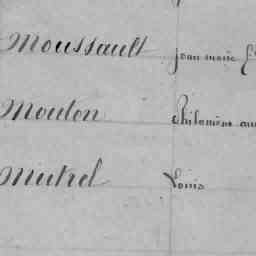 Moussault Jean Marie
Mouton Philomène
Michel Louis